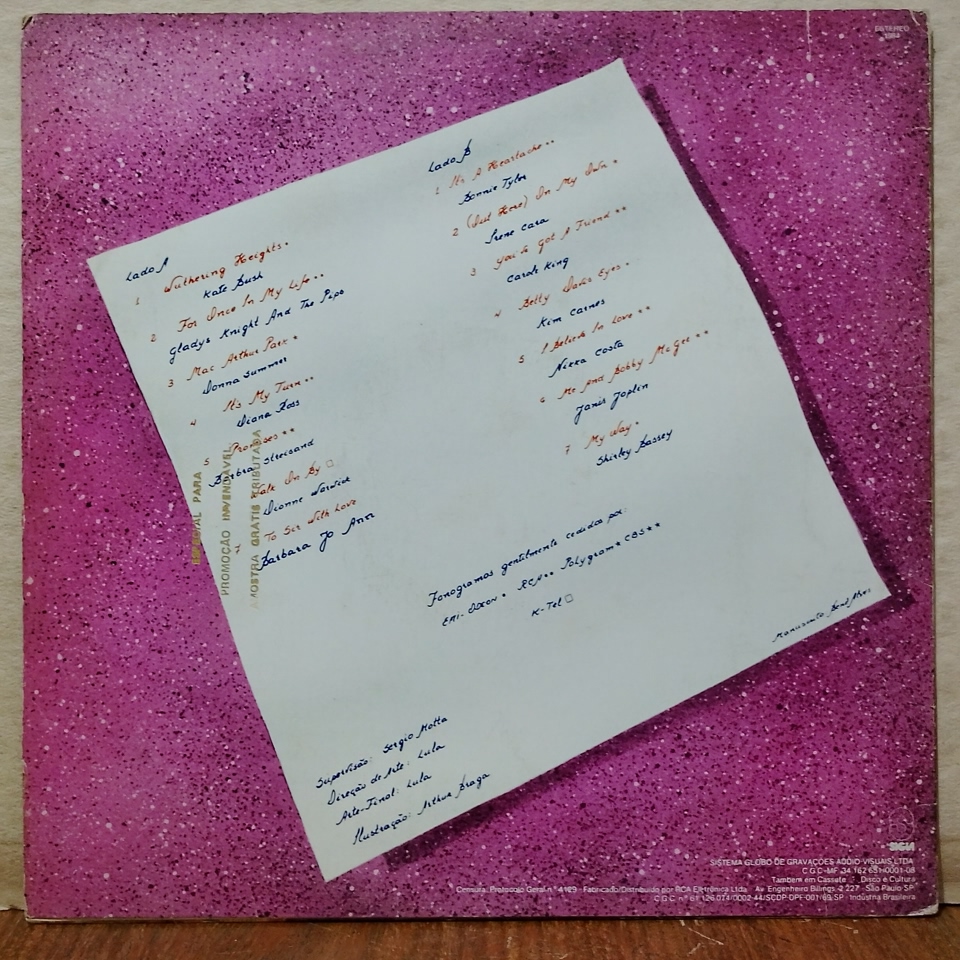 ESTÉREO
1984
Lado A
1 Wuthering Heights *
Kate Bush
2 For Once In My Life **
Gladys Knight And The Pips
3 Mac Arthur Park *
Donna Summer
4 It's My Turn **
Diana Ross
5 Promises **
Barbra Streisand
Walk On By □
Dionne Warwick
7 To Sir With Love
Barbara Jo Ann
Lado B
1 It's A Heartache **
Bonnie Tyler
2 (Out Here) On My Own *
Irene Cara
3 You've Got A Friend **
Carole King
4 Betty Davis Eyes *
Kim Carnes
5 I Believe In Love **
Nikka Costa
6 Me And Bobby McGee **
Janis Joplin
7 My Way *
Shirley Bassey
Fonogramas gentilmente cedidos por:
EMI-Odeon * RCA ** Polygram * CBS **
K-Tel □
Manuscrito
ESPECIAL PARA
PROMOÇÃO INVENDÁVEL
AMOSTRA GRATIS TRIBUTADA
Supervisão: Sergio Motta
Direção de Arte: Lula
Arte-Final: Lula
Ilustração: Arthur Braga
SIGLA
SISTEMA GLOBO DE GRAVAÇÕES AUDIO-VISUAIS LTDA
C.G.C.-MF. 34.162.651/0001-08
Também em Cassete Disco é Cultura
Censura: Protocolo Geral n.º 4129 - Fabricado/Distribuído por RCA Eletrônica Ltda Av. Engenheiro Billings, 2.227 - São Paulo SP
C.G.C. n.º 61.126.074/0002-44/SCDP-DPF-001/69/SP - Indústria Brasileira